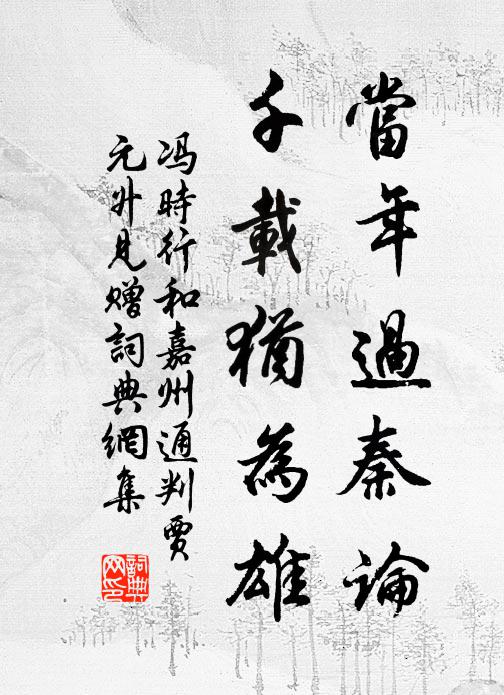 當年過秦論
千載猶為雄
冯時行和嘉州通判賈
元外見赠詞典網集
詞典
网印